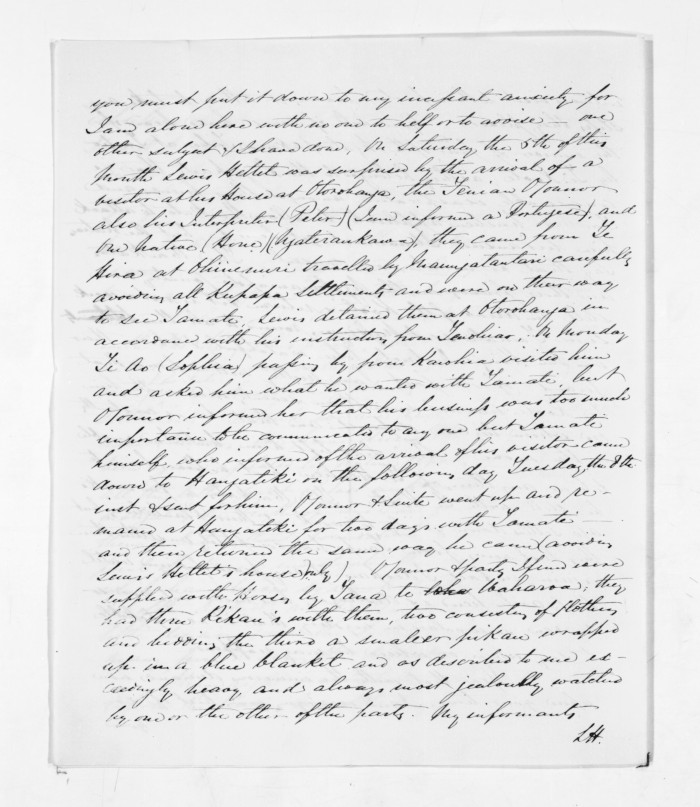 you must put it down to my incessant anxiety for
I am alone here with no one to help or to advise — one
other subject & I have done, On Saturday the 5th of this
Month Lewis Hettit was surprised by the arrival of a
visitor at his House at Otorohanga, the Fenian O'Connor
also his Interpreter (Peter) (I am informed a Portugese), and
one native (Hone) (Ngateraukawa), they came from Te
Hira at Ohinemuri travelled by Maungatautari carefully
avoiding all Kupapa Settlements and were on their way
to see Tamati, Lewis detained them at Otorohanga in
accordance with his instructions from ; On Monday
Te Ao (Sophia) passing by from Kawhia visited him
and asked him what he wanted with Tamati, but
O'Connor informed her that his business was too much
importance to be communicated to any one but Tamati
himself, who informed of the arrival of his visitor came
down to Hangatiki on the following day Tuesday, the 8th
inst & sent for him, O'Connor & Suite went up and re-
mained at Hangatiki for two days with Tamati —
and then returned the same way he came (avoiding
Lewis Hettit's house only). O'Connor & party I find were
supplied with Horses by Tana te Waharoa; they
had three Pikau's with them, two consisting of clothing
and bedding the third a smaller pikau wrapped
up in a blue blanket and as described to me ex-
ceedingly heavy and always most jealously watched
by one or the other of the party. My informants
LH.